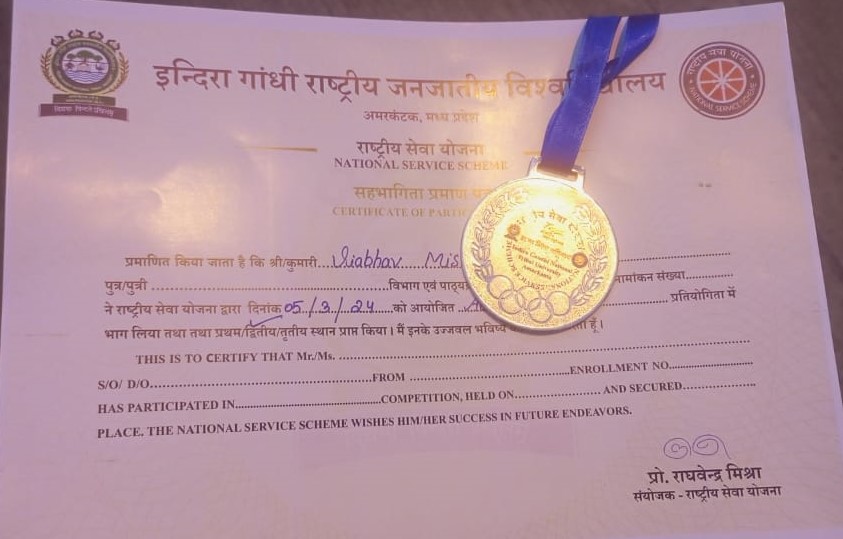 इन्दिरा गांधी राष्ट्रीय जनजातीय
अमरकंटक, मध्य प्रदेश
राष्ट्रीय सेवा योजना
NATIONAL SERVICE SCHEME
NATIONAL SERVICE SCHEME
सहभागिता प्रमाण
CERTIFICATE OF
Indira Gandhi National
Tribal University
Amarkantak
प्रमाणित किया जाता है कि श्री/कुमारी... Viabhav Mis
पुत्र/पुत्री ............विभाग एवं पाठ्य
नामांकन संख्या............
ने राष्ट्रीय सेवा योजना द्वारा दिनांक 05/3/24 ....को आयोजित
............ प्रतियोगिता में
भाग लिया तथा तथा प्रथम/द्वितीय/तृतीय स्थान प्राप्त किया। मैं इनके उज्जवल हूँ।
THIS IS TO CERTIFY THAT Mr./Ms. ............
S/O/ D/O............FROM ............ENROLLMENT NO............
HAS PARTICIPATED IN............COMPETITION, HELD ON............ AND SECURED............
PLACE. THE NATIONAL SERVICE SCHEME WISHES HIM/HER SUCCESS IN FUTURE ENDEAVORS.
प्रो. राघवेन्द्र मिश्रा
संयोजक - राष्ट्रीय सेवा योजना